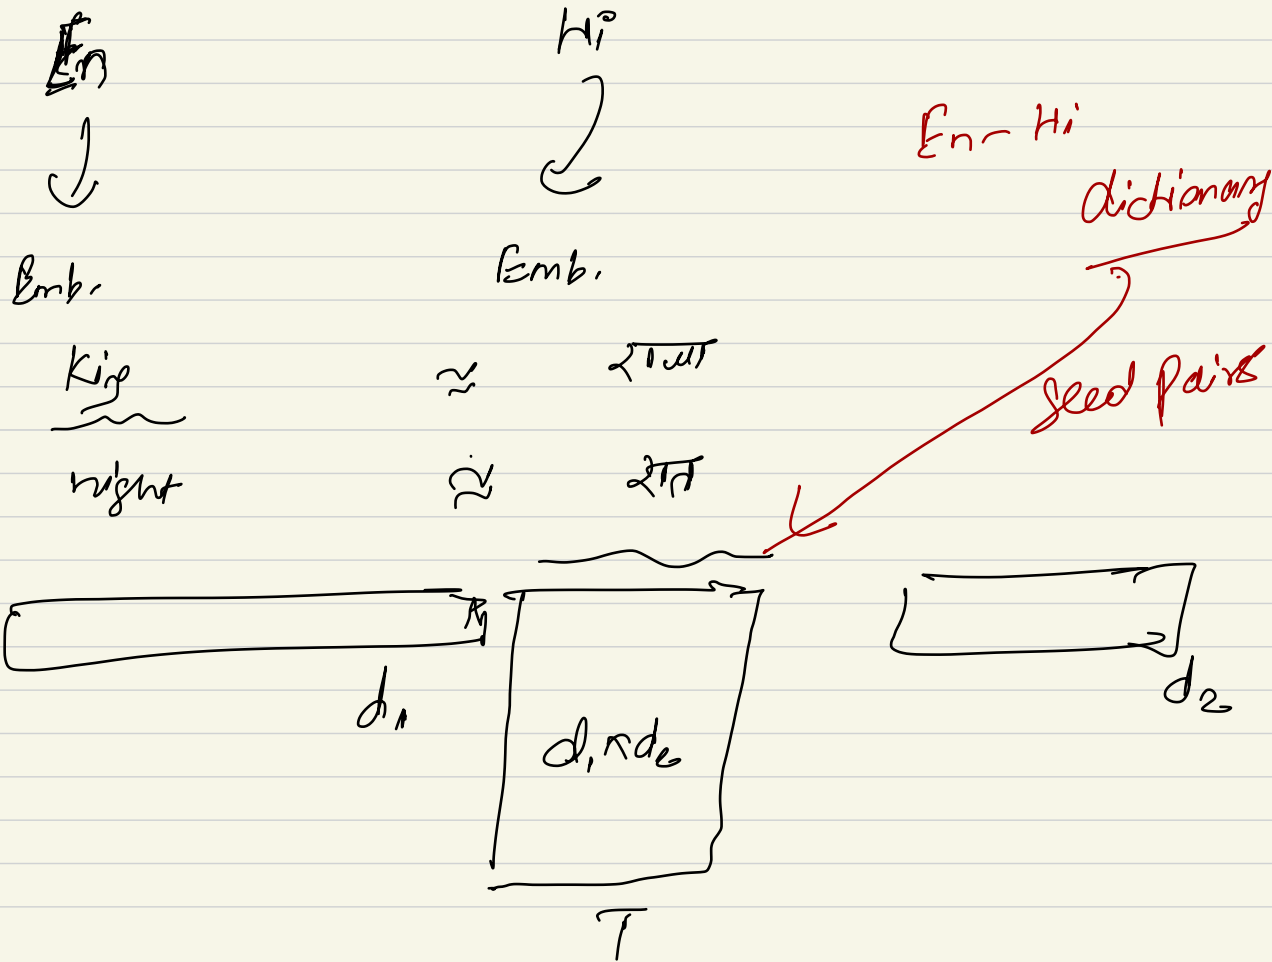 En
Hi
En - Hi
dictionary
Emb.
Emb.
King ≈ राजा
seed pairs
night ≅ रात
d₁
d₁ x d₂
d₂
T